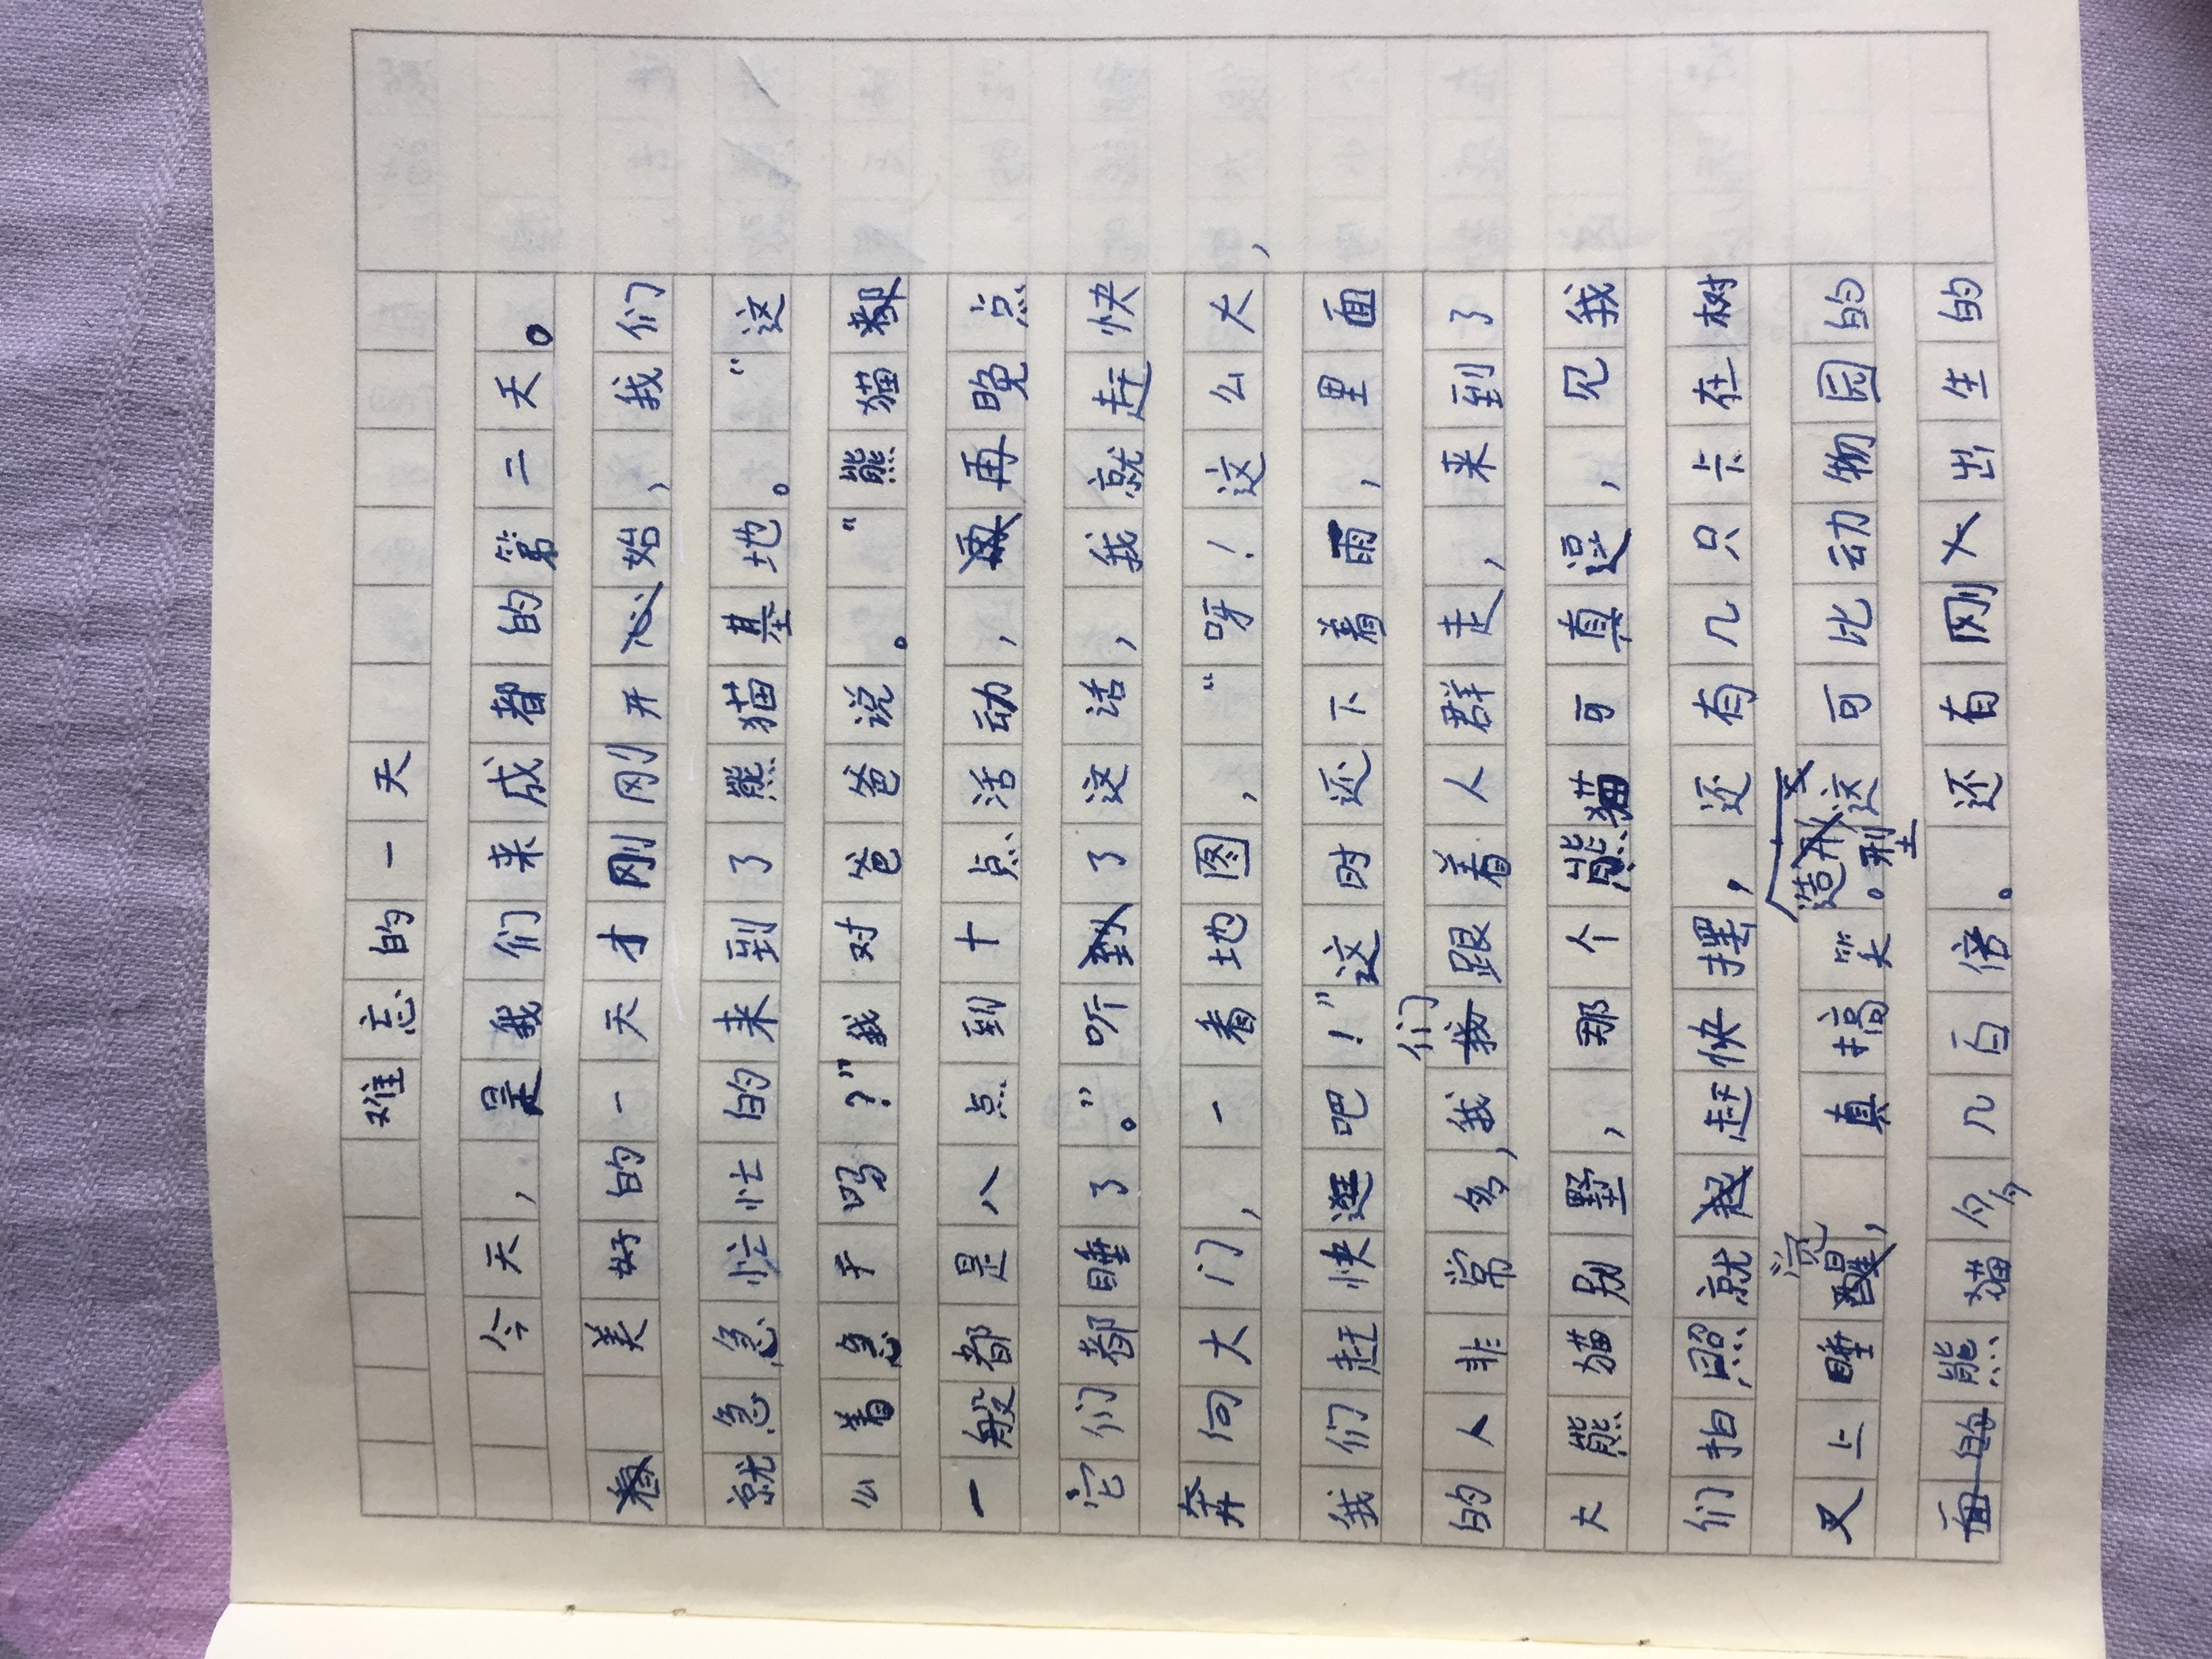 难忘的一天
今天，是我们来成都的第二天。
美好的一天才刚刚开始，我们
就急急忙忙的来到了熊猫基地。“这
么着急干吗？”我对爸爸说。“熊猫都
一般都是八点到十点活动，再晚点
它们都睡了。”听了这话，我就赶快
奔向大门，一看地图，“呀！这么大，
我们赶快逛吧！”这时还下着雨，里面
的人非常多，我们跟着人群走，来到了
大熊猫别墅，那个熊猫可真逗，见我
们拍照就赶快摆造型，还有几只卡在树
又上睡觉，真搞笑。这可比动物园的
熊猫多几百倍。还有刚出生的